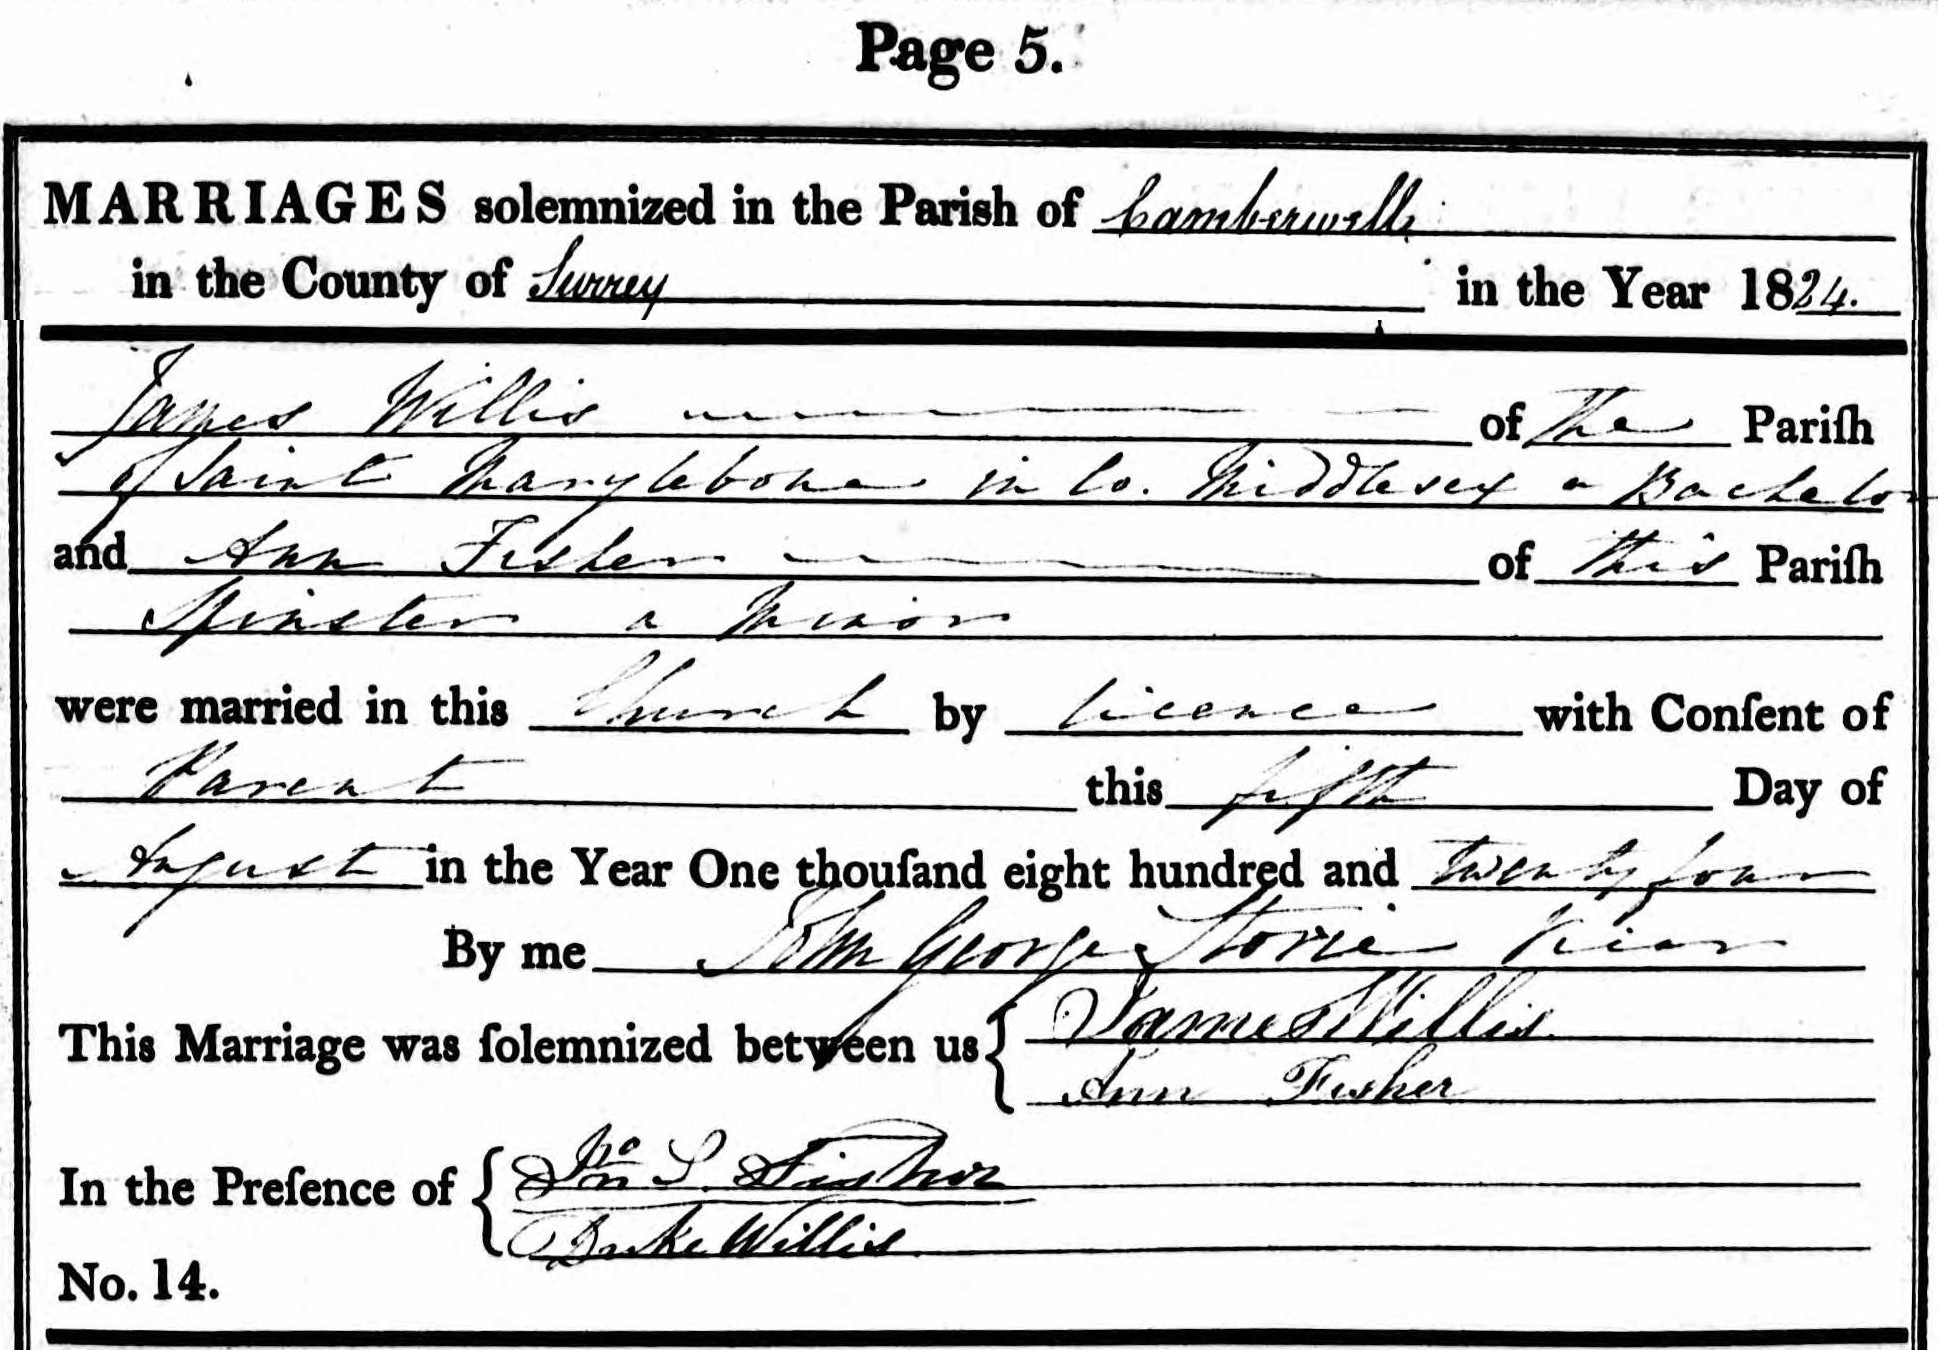 Page 5.
MARRIAGES solemnized in the Parish of Camberwell
in the County of Surrey in the Year 1824.
James Willis of The Pariſh
of Saint Marylebone in Co. Middlesex a Bachelor
and Ann Fisher of this Pariſh
Spinster a Minor
were married in this Church by licence with Conſent of
Parent this fifth Day of
August in the Year One thouſand eight hundred and twenty four
By me John George Storie Vicar
This Marriage was ſolemnized between us { James Willis
Ann Fisher
In the Preſence of { Jno S. Fisher
Duke Willis
No. 14.